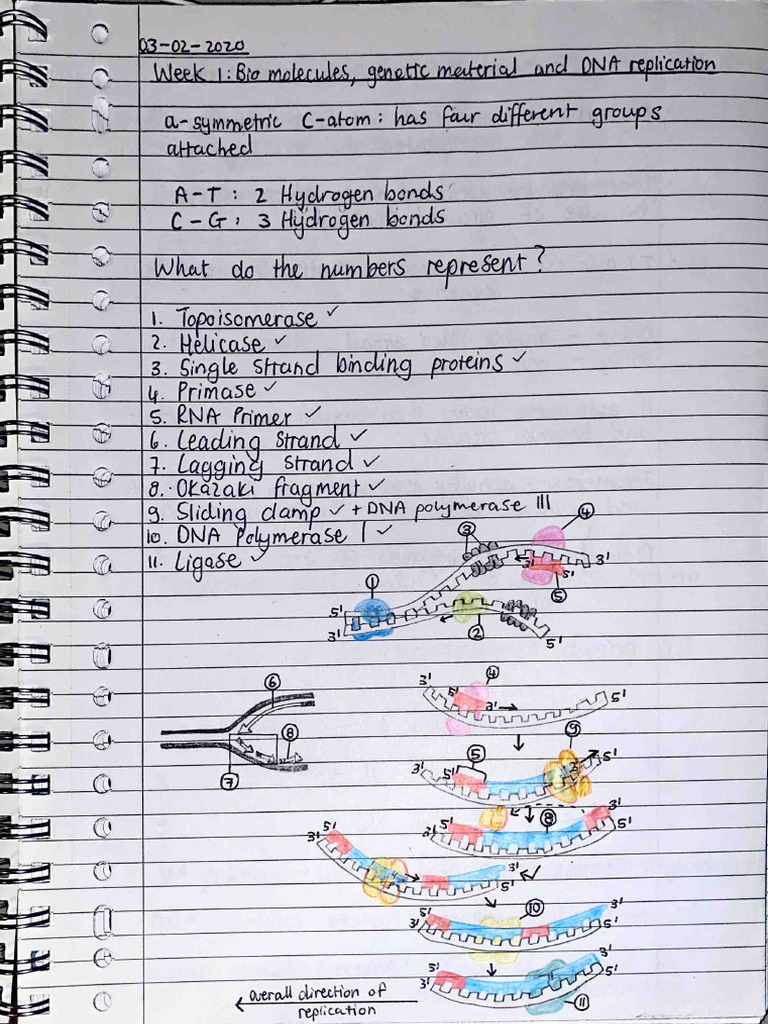 03-02-2020
Week 1: Bio molecules, genetic material and DNA replication
a-symmetric C-atom: has four different groups
attached
A-T: 2 Hydrogen bonds
C-G: 3 Hydrogen bonds
What do the numbers represent?
1. Topoisomerase ✓
2. Helicase ✓
3. Single strand binding proteins ✓
4. Primase ✓
5. RNA Primer ✓
6. Leading strand ✓
7. Lagging strand ✓
8. Okazaki fragment ✓
9. Sliding clamp ✓ + DNA polymerase III
10. DNA polymerase I ✓
11. Ligase ✓
3 4
3' 5' 3'
1 5
5' 3' 2 5'
4
3' 5' 3' 5'
6
8
7
9
5
3' 5' 3' 5'
8
3' 5' 3' 5'
5' 3' 3' 5'
10
3' 5' 3' 5'
5' 3' 3' 5'
11
overall direction of
replication